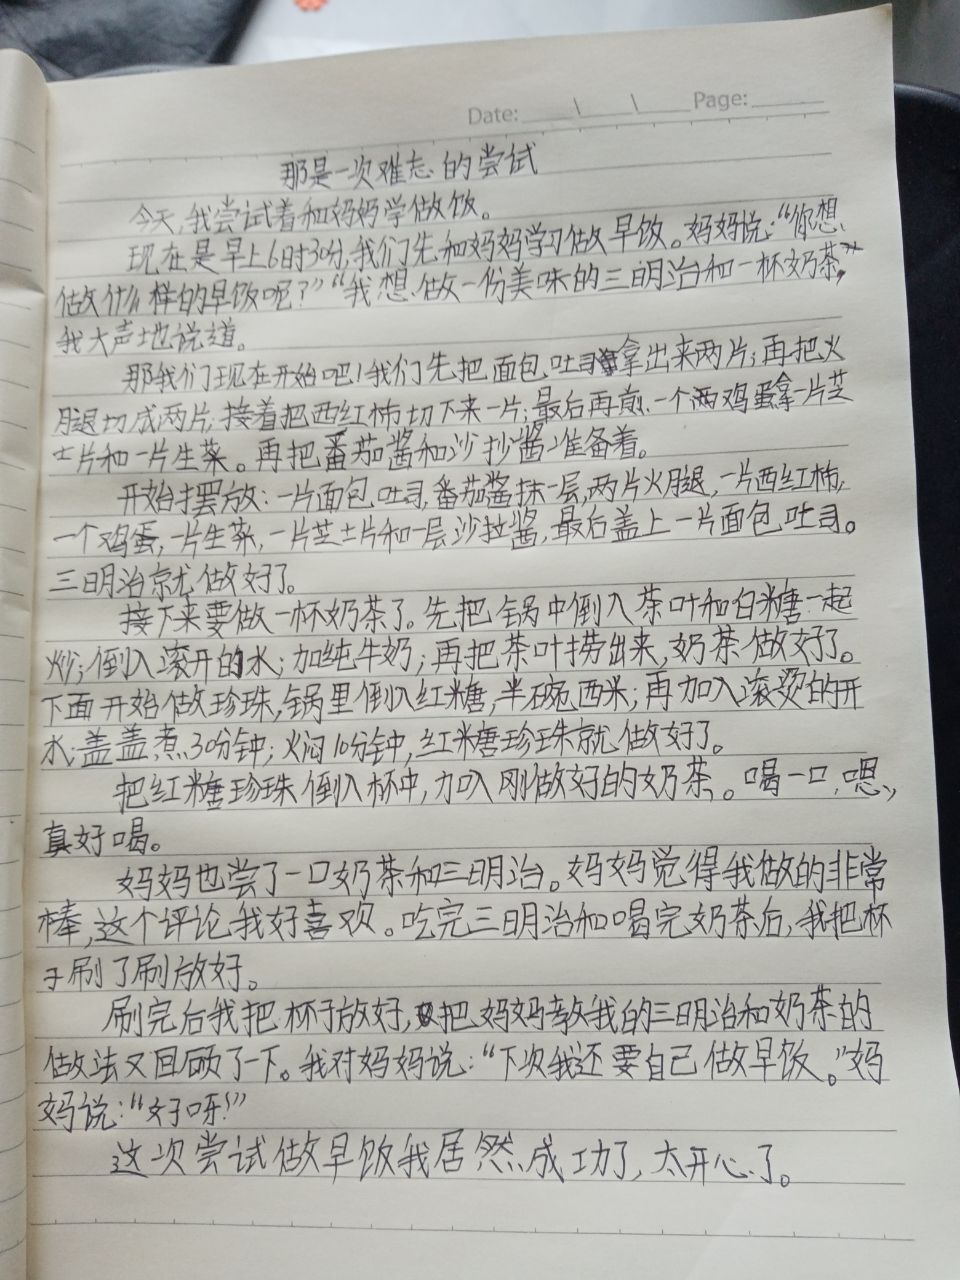 Date: \ \ Page:
那是一次难忘的尝试
今天,我尝试着和妈妈学做饭。
现在是早上6时30分,我们先和妈妈学习做早饭。妈妈说:“你想
做什么样的早饭呢?”“我想做一份美味的三明治和一杯奶茶,”
我大声地说道。
那我们现在开始吧!我们先把面包吐司拿出来两片;再把火
腿切成两片;接着把西红柿切下来一片;最后再煎一个鸡蛋拿一片芝
士片和一片生菜。再把番茄酱和沙抄酱准备着。
开始摆放:一片面包吐司,番茄酱抹一层,两片火腿,一片西红柿,
一个鸡蛋,一片生菜,一片芝士片和一层沙拉酱,最后盖上一片面包吐司。
三明治就做好了。
接下来要做一杯奶茶了。先把锅中倒入茶叶和白糖一起
炒;倒入滚开的水;加纯牛奶;再把茶叶捞出来,奶茶做好了。
下面开始做珍珠,锅里倒入红糖,半碗西米;再加入滚烫的开
水;盖盖煮30分钟;火焖10分钟,红糖珍珠就做好了。
把红糖珍珠倒入杯中,加入刚做好的奶茶。喝一口,嗯,
真好喝。
妈妈也尝了一口奶茶和三明治。妈妈觉得我做的非常
棒,这个评论我好喜欢。吃完三明治和喝完奶茶后,我把杯
子刷了刷放好。
刷完后我把杯子放好,把妈妈教我的三明治和奶茶的
做法又回顾了一下。我对妈妈说:“下次我还要自己做早饭。”妈
妈说:“好呀!”
这次尝试做早饭我居然成功了,太开心了。